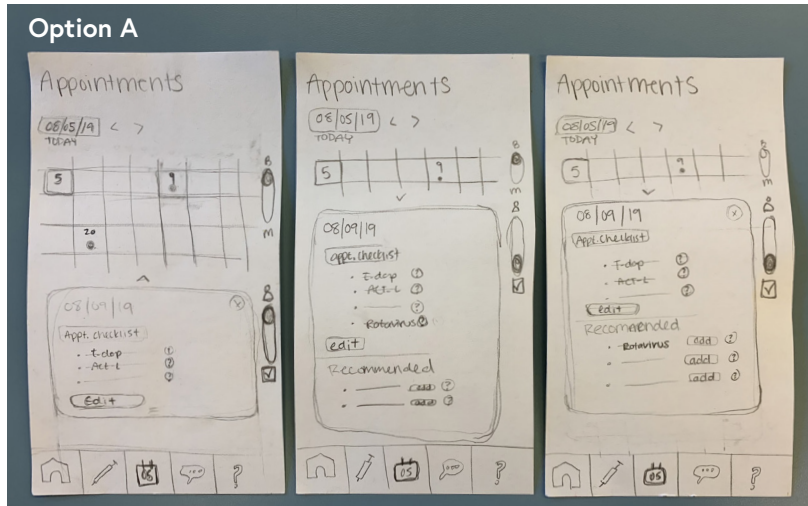 Option A
Appointments
08/05/19 < >
TODAY
B
5
9
M
20
B
08/09/19
Appt. checklist
T-dap ?
Act-L ?
?
Edit
05
?
Appointments
08/05/19 < >
TODAY
B
5
9
M
B
08/09/19
appt. checklist
T-dap ?
Act-L ?
?
Rotavirus ?
edit
Recommended
add ?
add ?
05
?
Appointments
08/05/19 < >
TODAY
B
5
9
M
B
08/09/19 x
Appt. checklist
T-dap ?
Act-L ?
?
edit
Recommended
Rotavirus add ?
add ?
add ?
05
?